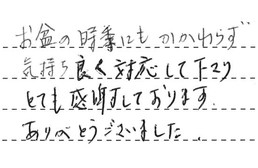 お盆の時季にもかかわらず
気持ち良く対応して下さり
とても感謝しております.
ありがとうございました.